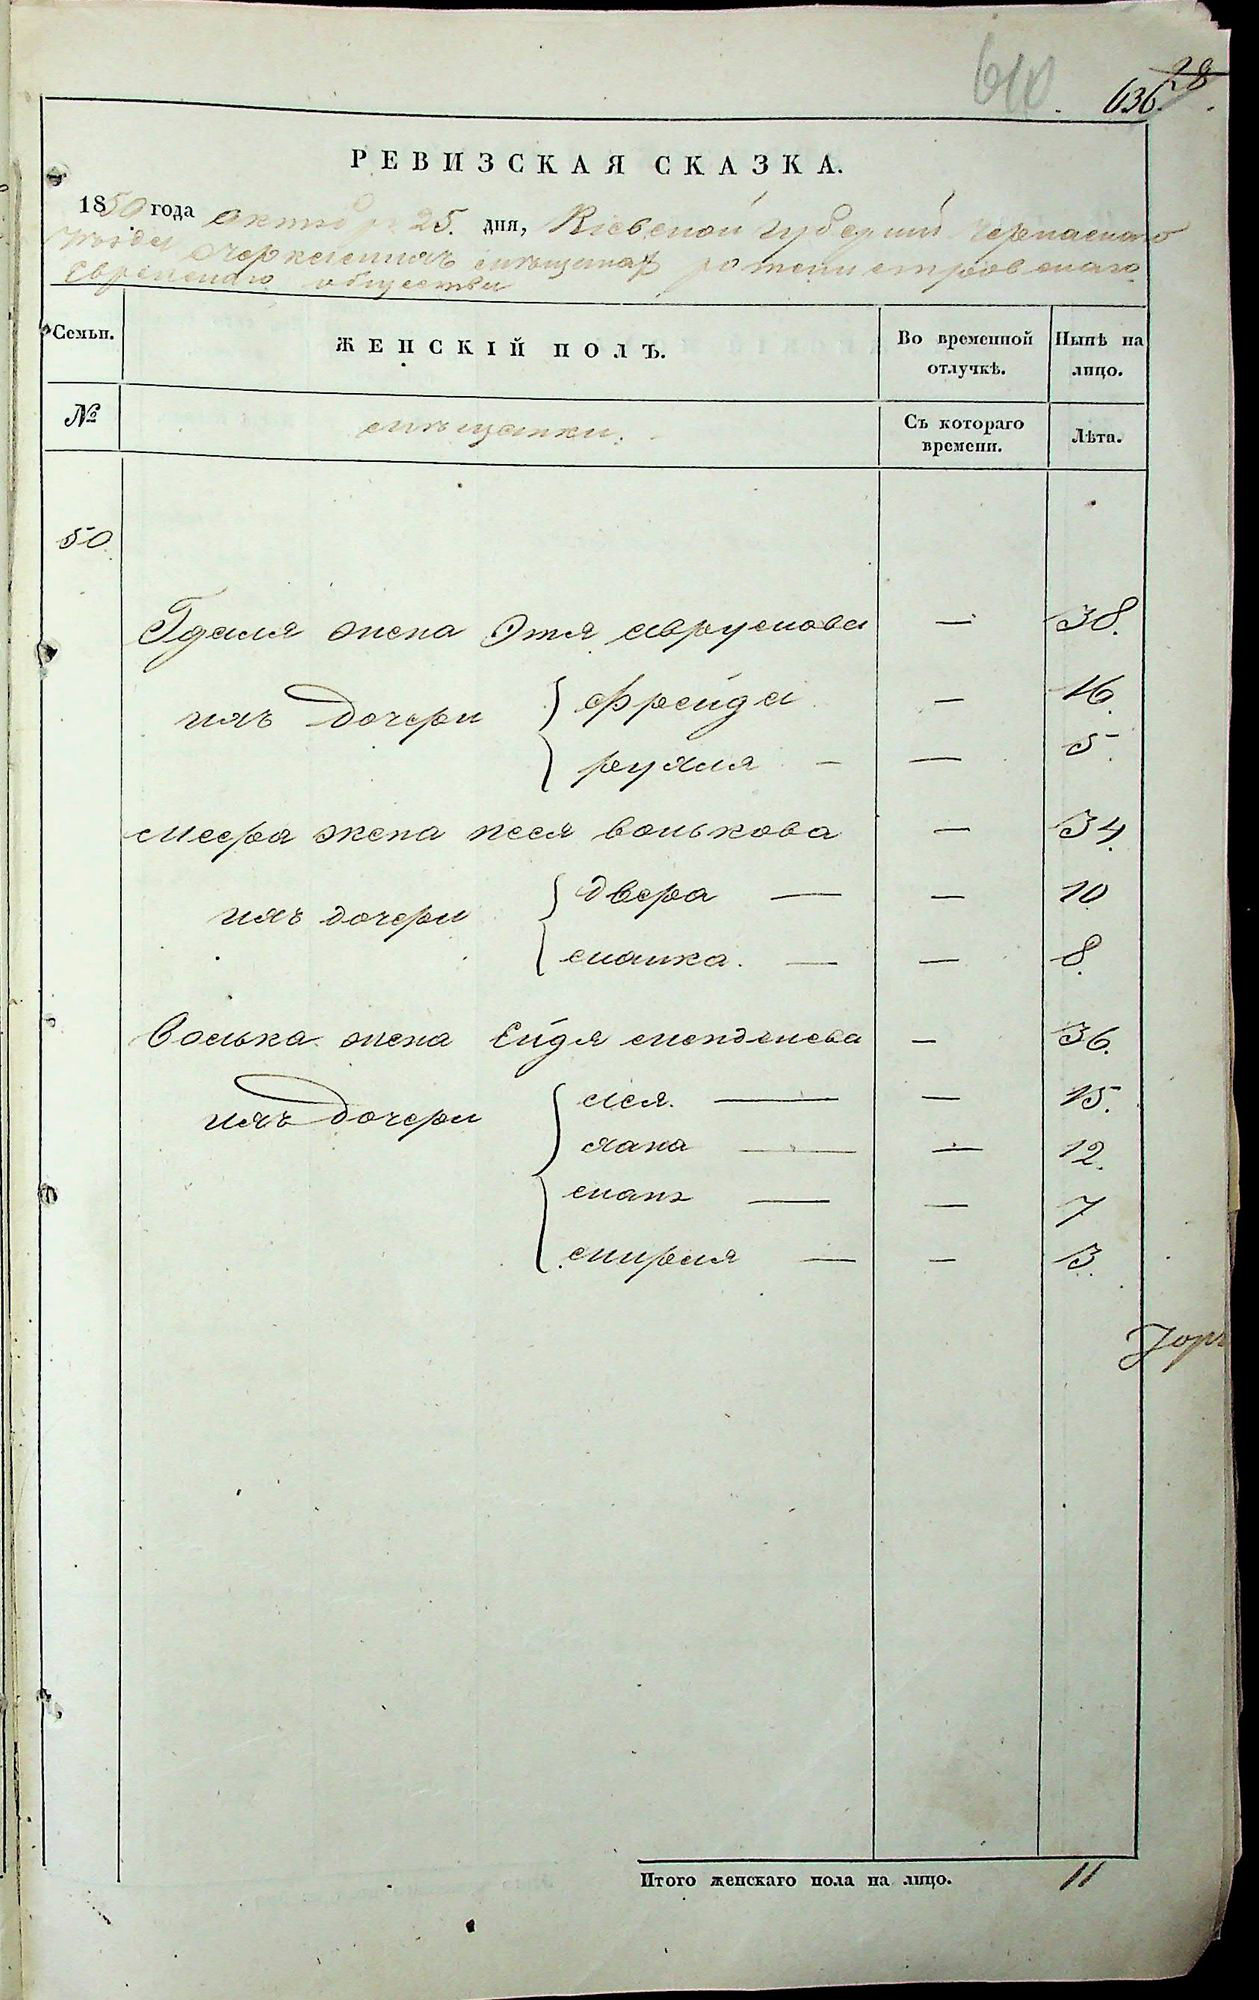 610
636. 28
РЕВИЗСКАЯ СКАЗКА.
1850 года октября 25. дня, Кіевской губерніи Черкаскаго
уезда о черкасскихъ мещанах ротмистровскаго
Еврейскаго общества
Семьи. ЖЕНСКІЙ ПОЛЪ. Во временной отлучкѣ. Нынѣ на лицо.
№ мещанки. Съ котораго времени. Лѣта.
50
Гдаля жена Этя аврумова — 38.
ихъ дочери фрейда — 16.
рухля — — 5.
меера жена песя волькова — 34.
ихъ дочери двера — — 10
малка. — — 8.
Волька жена Ейдля менделева — 36.
ихъ дочери лея. — — 15.
хана — — 12.
маня — — 7
мирля — — 3.
Итого женскаго пола на лицо. 11